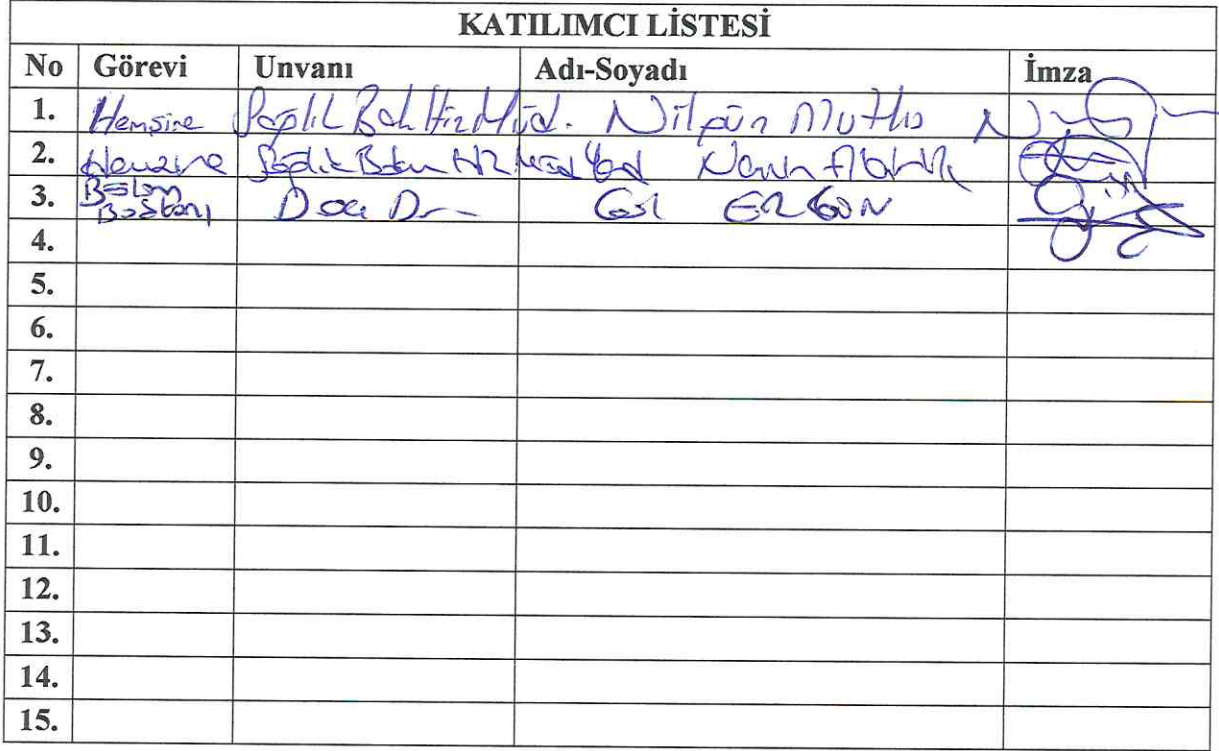 KATILIMCI LİSTESİ
No Görevi Unvanı Adı-Soyadı İmza
1. Hemşire Sağlık Bak. Hiz. Müd. Nilgün Mutlu
2. Hemşire Sağlık Bakım Hiz
3. Doç. Dr. Gül ERGÜN
4.
5.
6.
7.
8.
9.
10.
11.
12.
13.
14.
15.